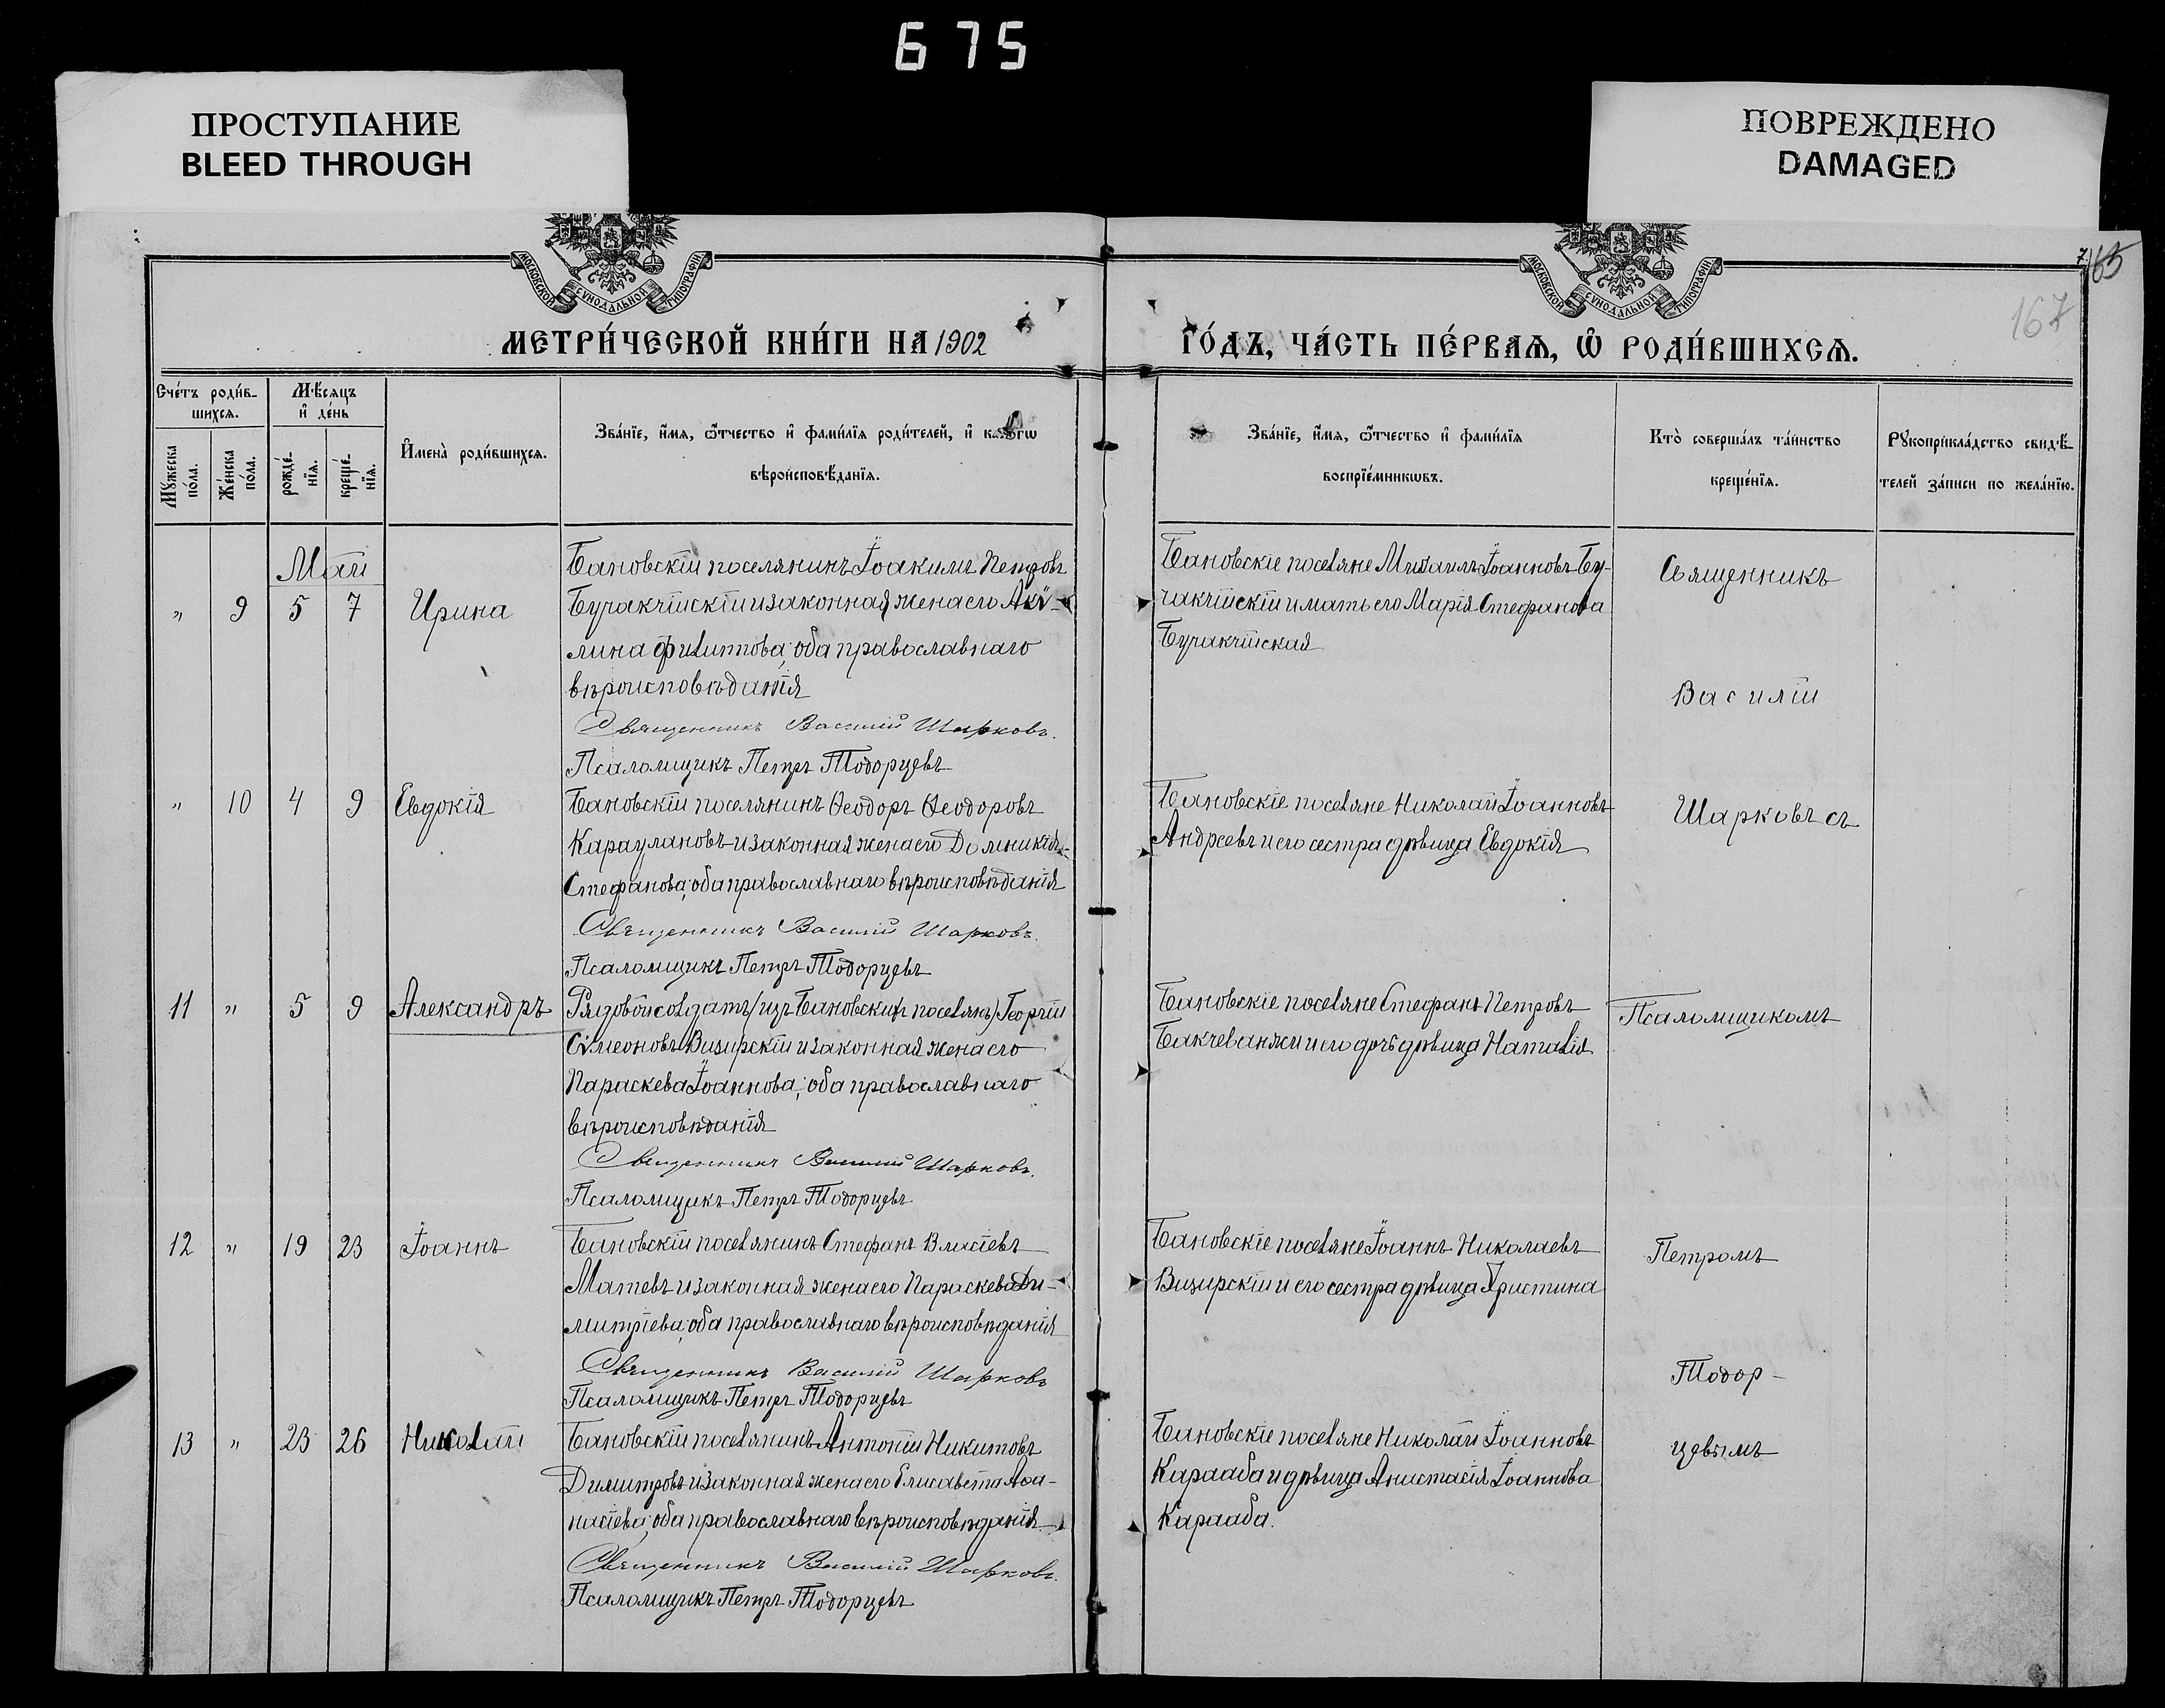 675
ПРОСТУПАНИЕ
BLEED THROUGH
ПОВРЕЖДЕНО
DAMAGED
МОСКОВСКОЙ СѴНОДАЛЬНОЙ ТИПОГРАФІИ
МОСКОВСКОЙ СѴНОДАЛЬНОЙ ТИПОГРАФІИ
7
167
МЕТРИ́ЧЕСКОЙ КНИ́ГИ НА 1902
ГО́ДЪ, ЧА́СТЬ ПЕ́РВАѦ, Ѡ РОДИ́ВШИХСѦ.
Сче́тъ роди́в-
шихсѧ.
Мѣ́сѧцъ
и де́нь
Мꙋ́жеска
по́ла.
Же́нска
по́ла.
рожде́-
нїѧ.
креще́-
нїѧ.
Имена̀ роди́вшихсѧ.
Зва́нїе, и́мѧ, ѻ́тчество и фами́лїѧ роди́телей, и како́гѡ
вѣроисповѣ́данїѧ.
Зва́нїе, и́мѧ, ѻ́тчество и фами́лїѧ
воспрїе́мникѡвъ.
Кто̀ соверша́лъ та́инство
креще́нїѧ.
Рꙋкоприкла́дство свидѣ́-
телей за́писи по жела́нїю.
Май
„ 9 5 7 Ирина
Бановскій поселянинъ Іоакимъ Петровъ
Бучакчійскій и законная жена его Акѵ-
лина Филиппова; оба православнаго
вѣроисповѣданія
Священникъ Василій Шарковъ.
Псаломщикъ Петръ Тодорцевъ
Бановскіе поселяне Михаилъ Іоанновъ Бу-
чакчійскій и мать его Марія Стефанова
Бучакчійская
Священникъ
Василій
„ 10 4 9 Евдокія
Бановскій поселянинъ Ѳеодоръ Ѳеодоровъ
Карауланoвъ и законная жена его Домникія
Стефанова; оба православнаго вѣроисповѣданія
Священникъ Василій Шарковъ.
Псаломщикъ Петръ Тодорцевъ
Бановскіе поселяне Николай Іоанновъ
Андреевъ и его сестра дѣвица Евдокія
Шарковъ съ
11 „ 5 9 Александръ
Рядовой солдатъ (изъ Бановскихъ поселянъ) Георгій
Сѵмеоновъ Визирскій и законная жена его
Параскева Іоаннова; оба православнаго
вѣроисповѣданія
Священникъ Василій Шарковъ.
Псаломщикъ Петръ Тодорцевъ
Бановскіе поселяне Стефанъ Петровъ
Бакчеванжи и его дочь дѣвица Наталія
Псаломщикомъ
12 „ 19 23 Іоаннъ
Бановскій поселянинъ Стефанъ Власіевъ
Матевъ и законная жена его Параскева Ди-
митріева; оба православнаго вѣроисповѣданія
Священникъ Василій Шарковъ
Псаломщикъ Петръ Тодорцевъ
Бановскіе поселяне Іоаннъ Николаевъ
Визирскій и его сестра дѣвица Христина
Петромъ
Тодор-
13 „ 23 26 Николай
Бановскій поселянинъ Антоній Никитовъ
Димитровъ и законная жена его Елисавета Аѳа-
насіева; оба православнаго вѣроисповѣданія
Священникъ Василій Шарковъ.
Псаломщикъ Петръ Тодорцевъ
Бановскіе поселяне Николай Іоанновъ
Караaба и дѣвица Анастасія Іоаннова
Караaба.
цевымъ